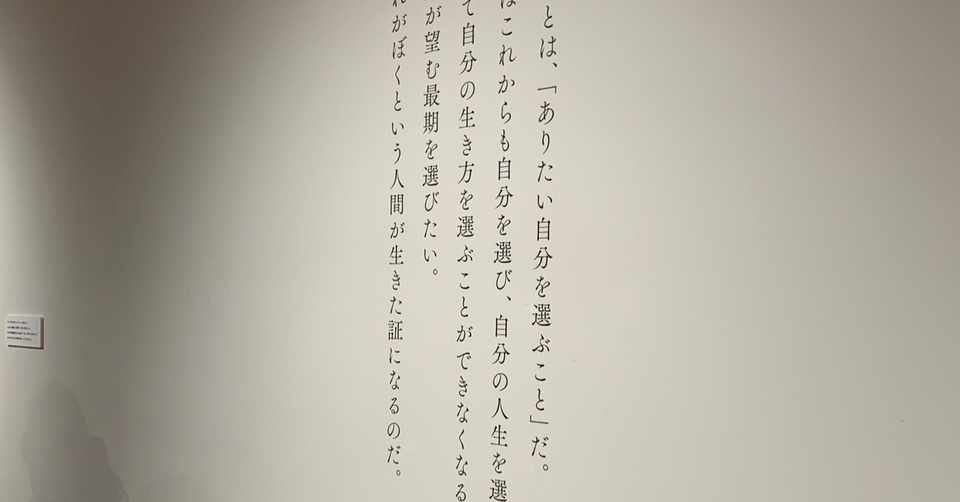 とは、「ありたい自分を選ぶこと」だ。
はこれからも自分を選び、自分の人生を選
て自分の生き方を選ぶことができなくなる
が望む最期を選びたい。
れがぼくという人間が生きた証になるのだ。